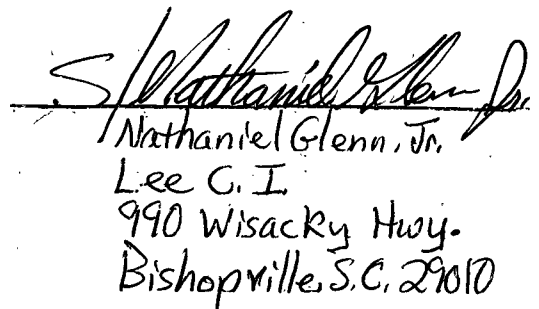 S/Nathaniel Glenn Jr.
Nathaniel Glenn, Jr.
Lee C. I.
990 Wisacky Hwy.
Bishopville, S.C. 29010